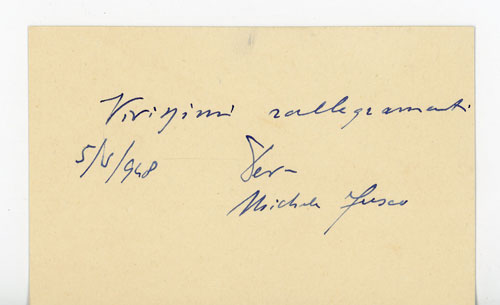 Vivissimi rallegramenti
5/5/948
Michele Fusco